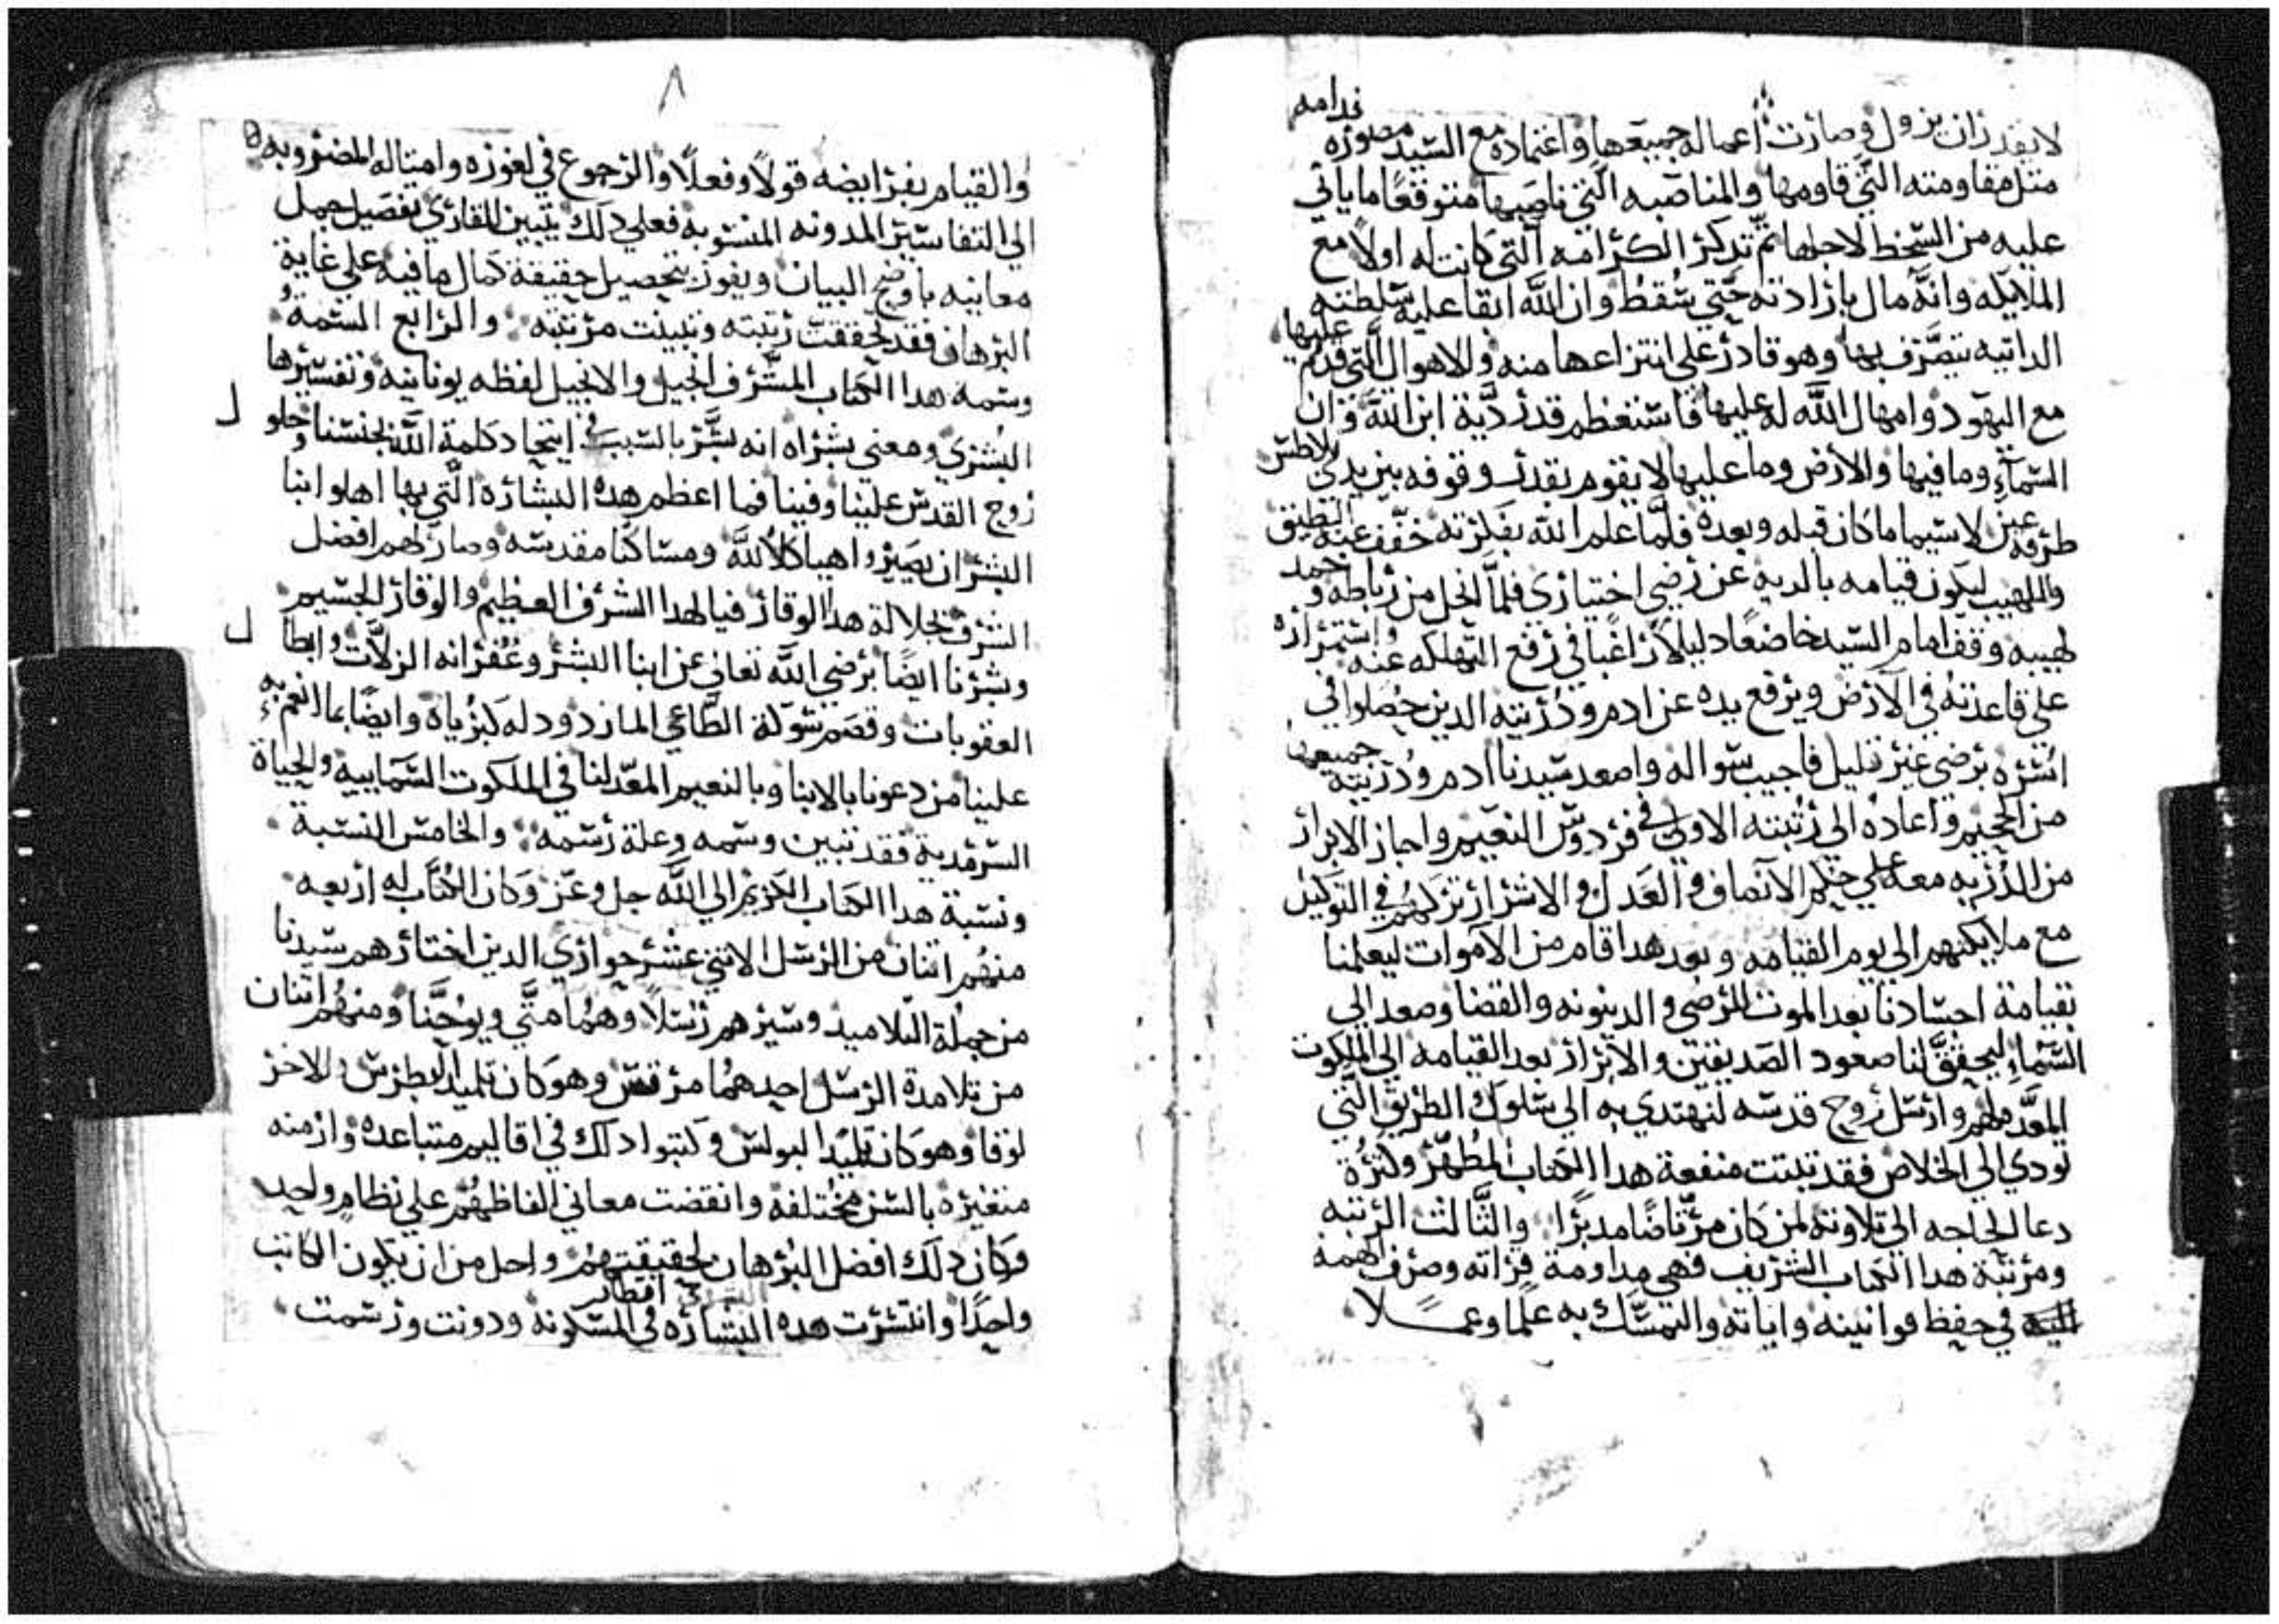 لا يقدر ان يزول وصارت اعماله جميعها واعتماده مع السيد مصوره قدامه
متل مقاومته التي قاومها والمناصبه التي ناصبها متوقعًا ما ياتي
عليه من السخط لاجلها ثم تدكر الكرامه التي كانت له اولاً مع
الملايكه وانه مال بارادته حتي سقط وان الله ابقا عليه سلطنته
الداتيه يتصرف بها وهو قادر علي انتزاعها منه والاهوال التي قدم عليها
مع اليهود وامهال الله له عليها فاستعظم قدر دية ابن الله وان
السمآء وما فيها والارض وما عليها لا يقوم بقدر وقوفه بين يدي بلاطس
طرفة عين لاسيما ما كان قبله وبعده فلما علم الله بفكرته خفف عنه التطبيق
واللهيب ليكون قيامه بالديه عن رضي اختياري فلما انحل من رباطه وخمد
لهيبه وقف امام السيد خاضعًا دليلاً راغبًا في رفع التهلكه عنه واستمراره
علي قاعدته في الارض ويرفع يده عن ادم ودريته الدين حصلوا في
اسره برضي غير قليل فاجيب سواله واصعد سيدنا ادم ودريته جميعها
من الجحيم واعاده الي رتبته الاولي في فردوس النعيم واجاز الابرار
من الدريه معه علي حكم الانصاف والعدل والاشرار تركهم في التوكيل
مع ملايكتهم الي يوم القيامه وبعد هدا قام من الاموات ليعلمنا
بقيامة اجسادنا بعد الموت للرضي والدينونه والقضا وصعد الي
السماء ليحقق لنا صعود الصديقين والابرار بعد القيامه الي الملكوت
المعد لهم وارسل روح قدسه لنهتدي به الي سلوك الطريق التي
تودي الي الخلاص فقد تبتت منفعة هدا الكتاب المطهر وكثرة
دعا الحاجه الي تلاوته لمن كان مرتاضًا مدبرًا والثالث الرتبه
ومرتبة هدا الكتاب الشريف فهي مداومة قراته وصرف الهمه
في حفظ قوانينه واياته والتمسك به علمًا وعمـــلاً
٨
والقيام بفرايضه قولاً وفعلاً والرجوع في لغوزه وامتاله المضروبه
الي التفاسير المدونه المنسوبه فعلي دلك يتبين للقاري تفصيل جمل
معانيه باوضح البيان ويفوز بتحصيل حقيقة كمال ما فيه علي غاية
البرهان فقد تحققت رتبته وتبينت مرتبته والرابع السمة
وسمة هدا الكتاب المشرف انجيل والانجيل لفظه يونانيه وتفسيرها
البشري ومعني بشراه انه بشر بالسبب في ايتحاد كلمة الله بجنسنا وحلول
روح القدس علينا وفينا فما اعظم هده البشاره التي بها اهلوا ابنا
البشر ان يصيروا هياكلاً لله ومساكنًا مقدسه وصار لهم افضل
الشرف بجلالة هدا الوقار فيا لهدا الشرف العظيم والوقار الجسيم
وبشرنا ايضًا برضي الله تعالي عن ابنا البشر وغفرانه الزلات وابطال
العقوبات وقصم شوكة الطاغي المارد ودله كبرياه وايضًا بما انعم به
علينا من دعونا بالابنا وبالنعيم المعد لنا في الملكوت السماييه والحياة
السرمدية فقد تبين وسمه وعلة رسمه والخامس النسبة
ونسبة هدا الكتاب الكريم الي الله جل وعز وكان الكتاب له اربعه
منهم اتنان من الرسل الاتني عشر حواري الدين اختارهم سيدنا
من جملة التلاميد وسيرهم رسلاً وهما متي ويوحنا ومنهم اتنان
من تلامدة الرسل احدهما مرقس وهو كان تلميد البطرس والاخر
لوقا وهو كان تلميدا لبولس وكتبوا دلك في اقاليم متباعده وازمنه
متغيره بالسن مختلفه وانقضت معاني الفاظهم علي نظام واحد
وكان دلك افضل البرهان لحقيقتهم واجل من ان يكون الكاتب
واحدًا وانتشرت هده البشاره في اقطار المسكونه ودونت ورسمت